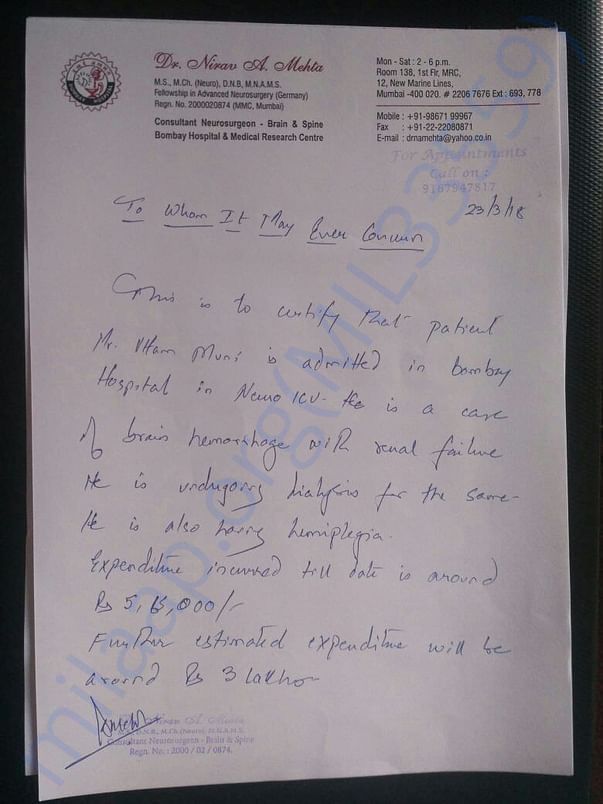 Dr. Nirav A. Mehta
M.S., M.Ch. (Neuro), D.N.B, M.N.A.M.S.
Fellowship in Advanced Neurosurgery (Germany)
Regn. No. 2000020874 (MMC, Mumbai)
Consultant Neurosurgeon - Brain & Spine
Bombay Hospital & Medical Research Centre
Mon - Sat : 2 - 6 p.m.
Room 138, 1st Flr, MRC,
12, New Marine Lines,
Mumbai -400 020. # 2206 7676 Ext : 693, 778
Mobile : +91-98671 99967
Fax : +91-22-22080871
E-mail : drnamehta@yahoo.co.in
For Appointments
Call on :
9167947817
23/3/18
To Whom It May Ever Concern
This is to certify that patient
Mr. Uttam Muni is admitted in bombay
Hospital in Neuro ICU. He is a case
of brain hemorrhage with renal failure
He is undergoing dialysis for the same.
He is also having hemiplegia.
Expenditure incurred till date is around
Rs 5,65,000/-
Further estimated expenditure will be
around Rs 3 lakhs
Dr. Nirav A. Mehta
D.N.B., M.Ch. (Neuro), M.N.A.M.S.
Consultant Neurosurgeon - Brain & Spine
Regn. No. : 2000 / 02 / 0874.